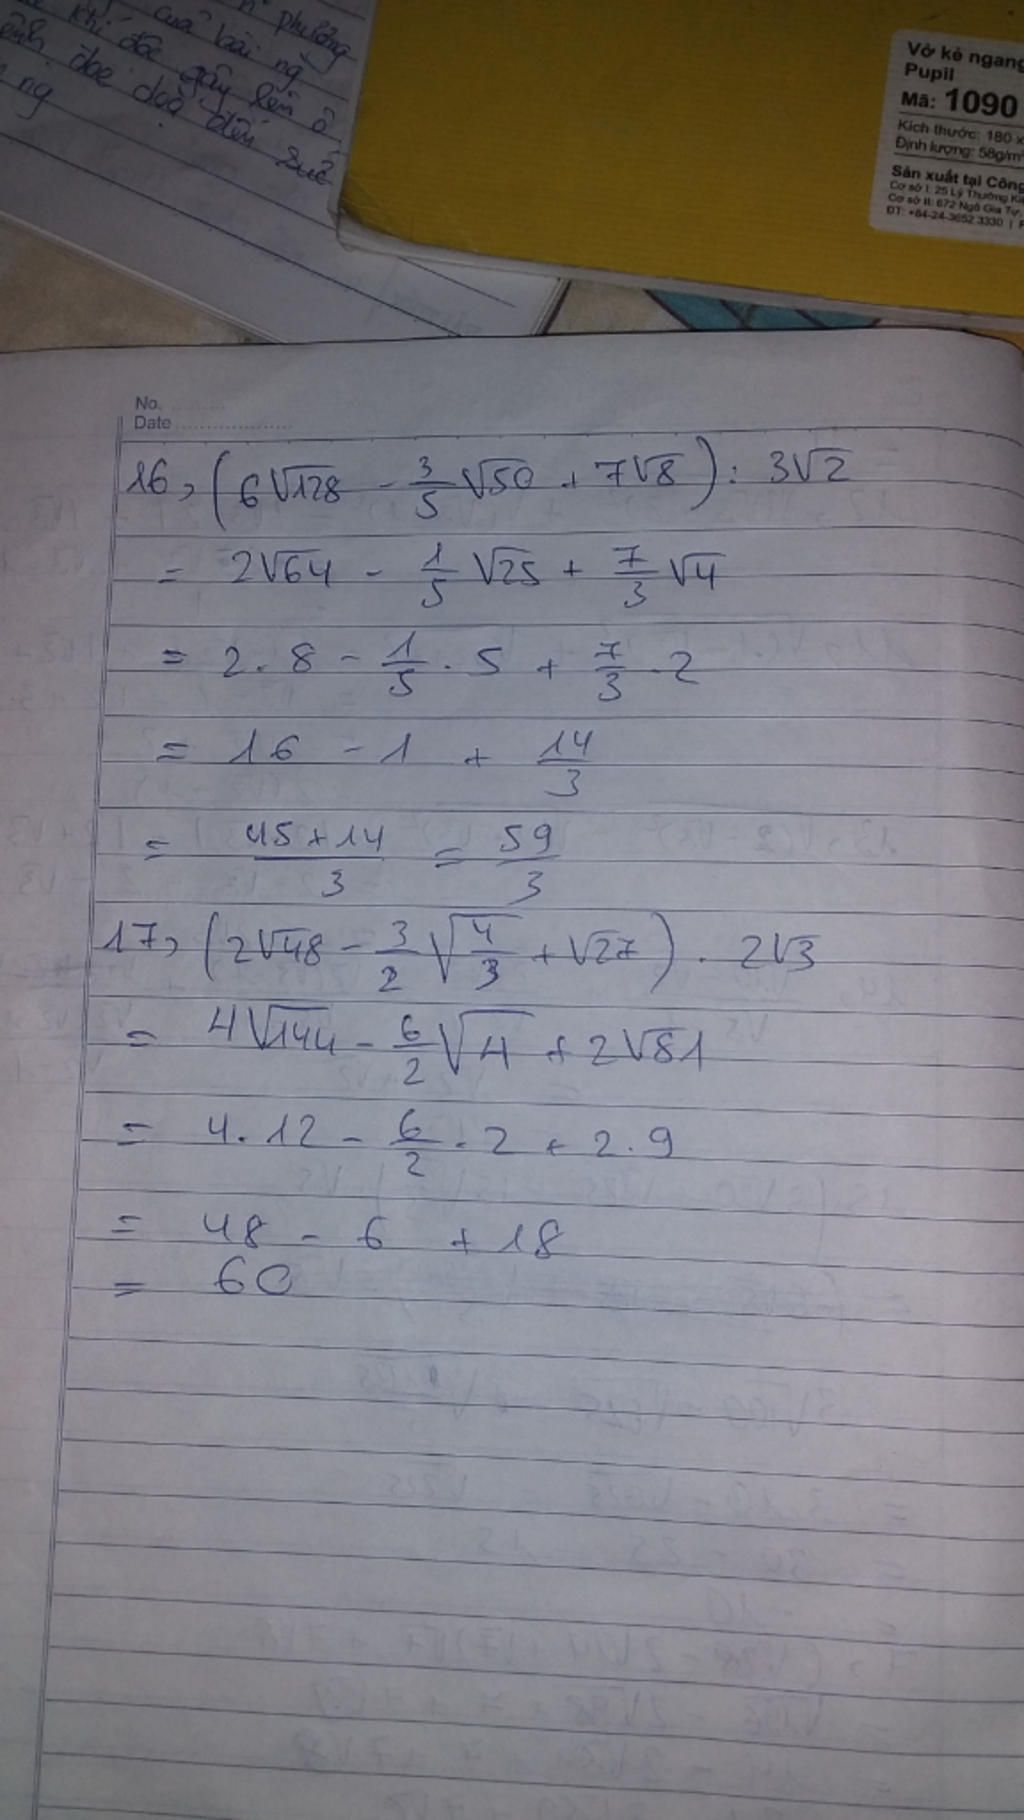 phương
của bài ng
khí độc gây lên ô
đe doạ đến sức
ng
Vở kẻ ngang
Pupil
Mã: 1090
Kích thước: 180 x
Định lượng: 58g/m
Sản xuất tại Công
Cơ sở I: 25 Lý Thường Ki
Cơ sở II: 672 Ngô Gia Tự,
ĐT: +84-24-3652 3330 |
No. ............
Date ......................
16, (6√128 - 3/5 √50 + 7√8) : 3√2
= 2√64 - 1/5 √25 + 7/3 √4
= 2.8 - 1/5 . 5 + 7/3 . 2
= 16 - 1 + 14/3
= 45+14/3 = 59/3
17, (2√48 - 3/2 √4/3 + √27) . 2√3
= 4√144 - 6/2 √4 + 2√81
= 4.12 - 6/2 . 2 + 2.9
= 48 - 6 + 18
= 60